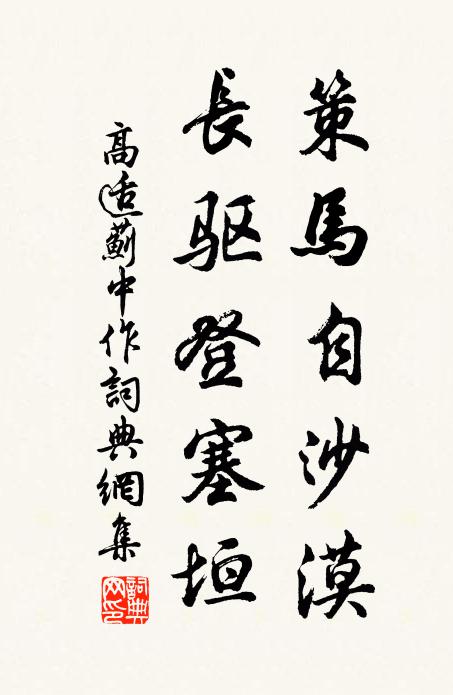 策馬自沙漠
長驱登塞垣
高适薊中作詞典網集
詞典网印